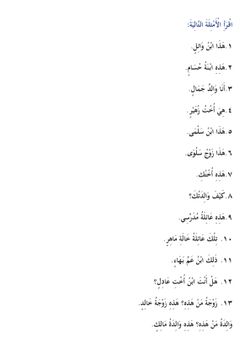 اقْرَأْ الْأَمْثِلَةَ التَّالِيَةَ:
١. هَذَا ابْنُ وَائِلٍ.
٢. هَذِهِ ابْنَةُ حُسَامٍ.
٣. أَنَا وَالِدُ جَمَالٍ.
٤. هِيَ أُخْتُ زُهَيْرٍ.
٥. هَذَا ابْنُ سَلْمَى.
٦. هَذَا زَوْجُ سَلْوَى.
٧. هَذِهِ أُخْتُكِ.
٨. كَيْفَ وَالِدَتُكَ؟
٩. هَذِهِ عَائِلَةُ مُدَرِّسِي.
١٠. تِلْكَ عَائِلَةُ خَالَةِ مَاهِرٍ.
١١. ذَلِكَ ابْنُ عَمِّ بَهَاءٍ.
١٢. هَلْ أَنْتَ ابْنُ أُخْتِ عَادِلٍ؟
١٣. زَوْجَةُ مَنْ هَذِهِ؟ هَذِهِ زَوْجَةُ خَالِدٍ.
وَالِدَةُ مَنْ هَذِهِ؟ هَذِهِ وَالِدَةُ مَالِكٍ.